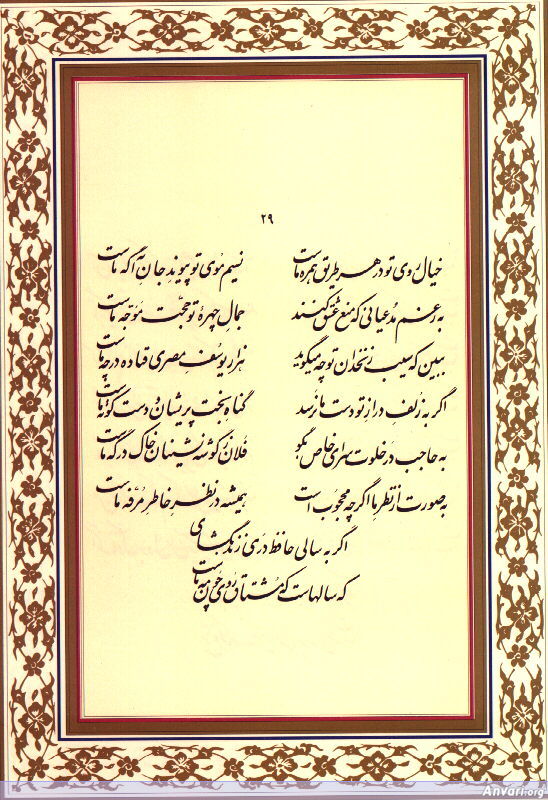 ۲۹
خیال روی تو در هر طریق همره ماست نسیم موی تو پیوند جان آگه ماست
به رغم مدعیانی که منع عشق کنند جمال چهرهٔ تو حجت موجه ماست
ببین که سیب زنخدان تو چه میگوید هزار یوسف مصری فتاده در چه ماست
اگر به زلف دراز تو دست ما نرسد گناه بخت پریشان و دست کوته ماست
به حاجب در خلوت سرای خاص بگو فلان ز گوشه نشینان خاک درگه ماست
به صورت از نظر ما اگرچه محجوب است همیشه در نظر خاطر مرفه ماست
اگر به سالی حافظ دری زند بگشای
که سالهاست که مشتاق روی چون مه ماست
Anvari.org